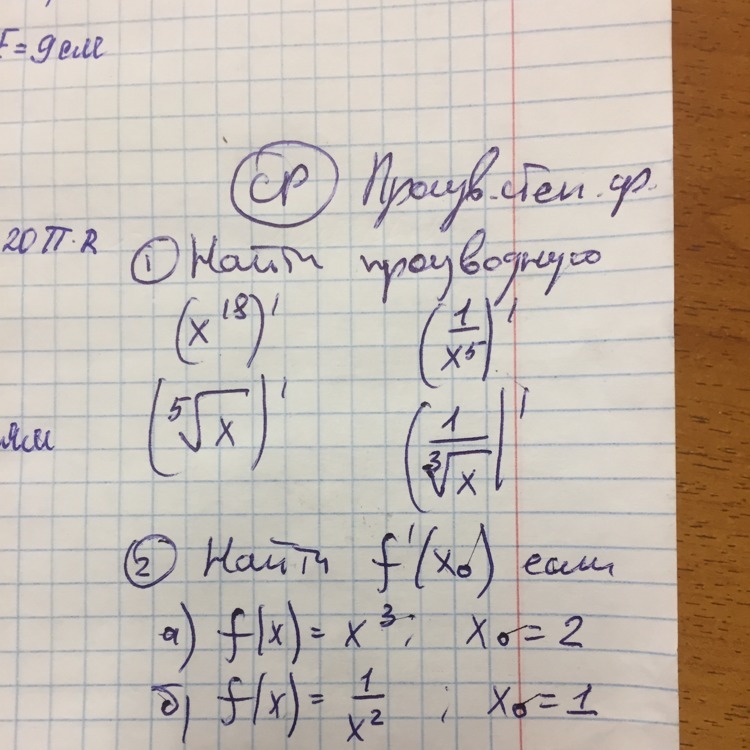 F = 9 см
СР Произв. степ. ф.
20π·R
① Найти производную
(x¹⁸)' (1/x⁵)'
(⁵√x)' (1/³√x)'
ям
② Найти f'(x₀) если
а) f(x) = x³; x₀ = 2
б) f(x) = 1/x² ; x₀ = 1